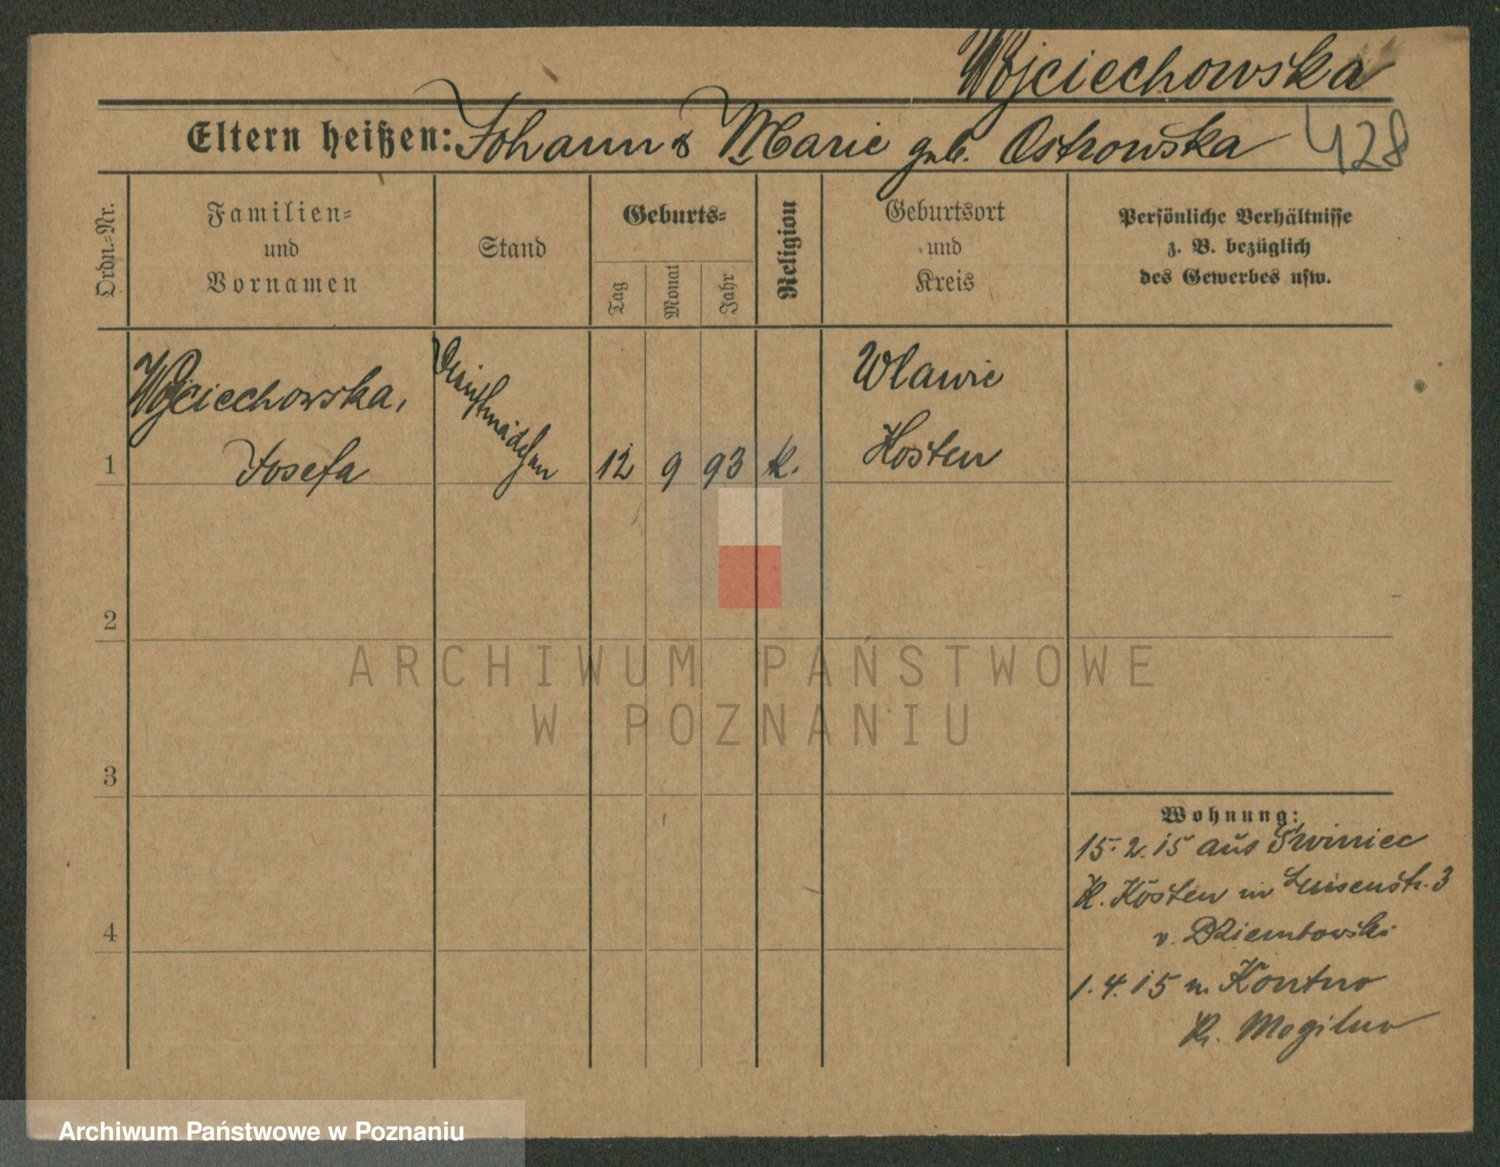 Wojciechowska
Eltern heißen: Johann & Marie geb. Ostrowska 428
Ordn.=Nr.
Familien=
und
Vornamen
Stand
Geburts=
Tag
Monat
Jahr
Religion
Geburtsort
und
Kreis
Persönliche Verhältnisse
z. B. bezüglich
des Gewerbes usw.
Wojciechowska,
Josefa
Dienstmädchen
12 9 93 k.
Wlawie
Kosten
1
2
3
4
Wohnung:
15.2.15 aus Swiniec
K. Kosten in Luisenstr. 3
v. Dziembowski
1.4.15 n.
K. Mogilno
ARCHIWUM PAŃSTWOWE
W POZNANIU
Archiwum Państwowe w Poznaniu